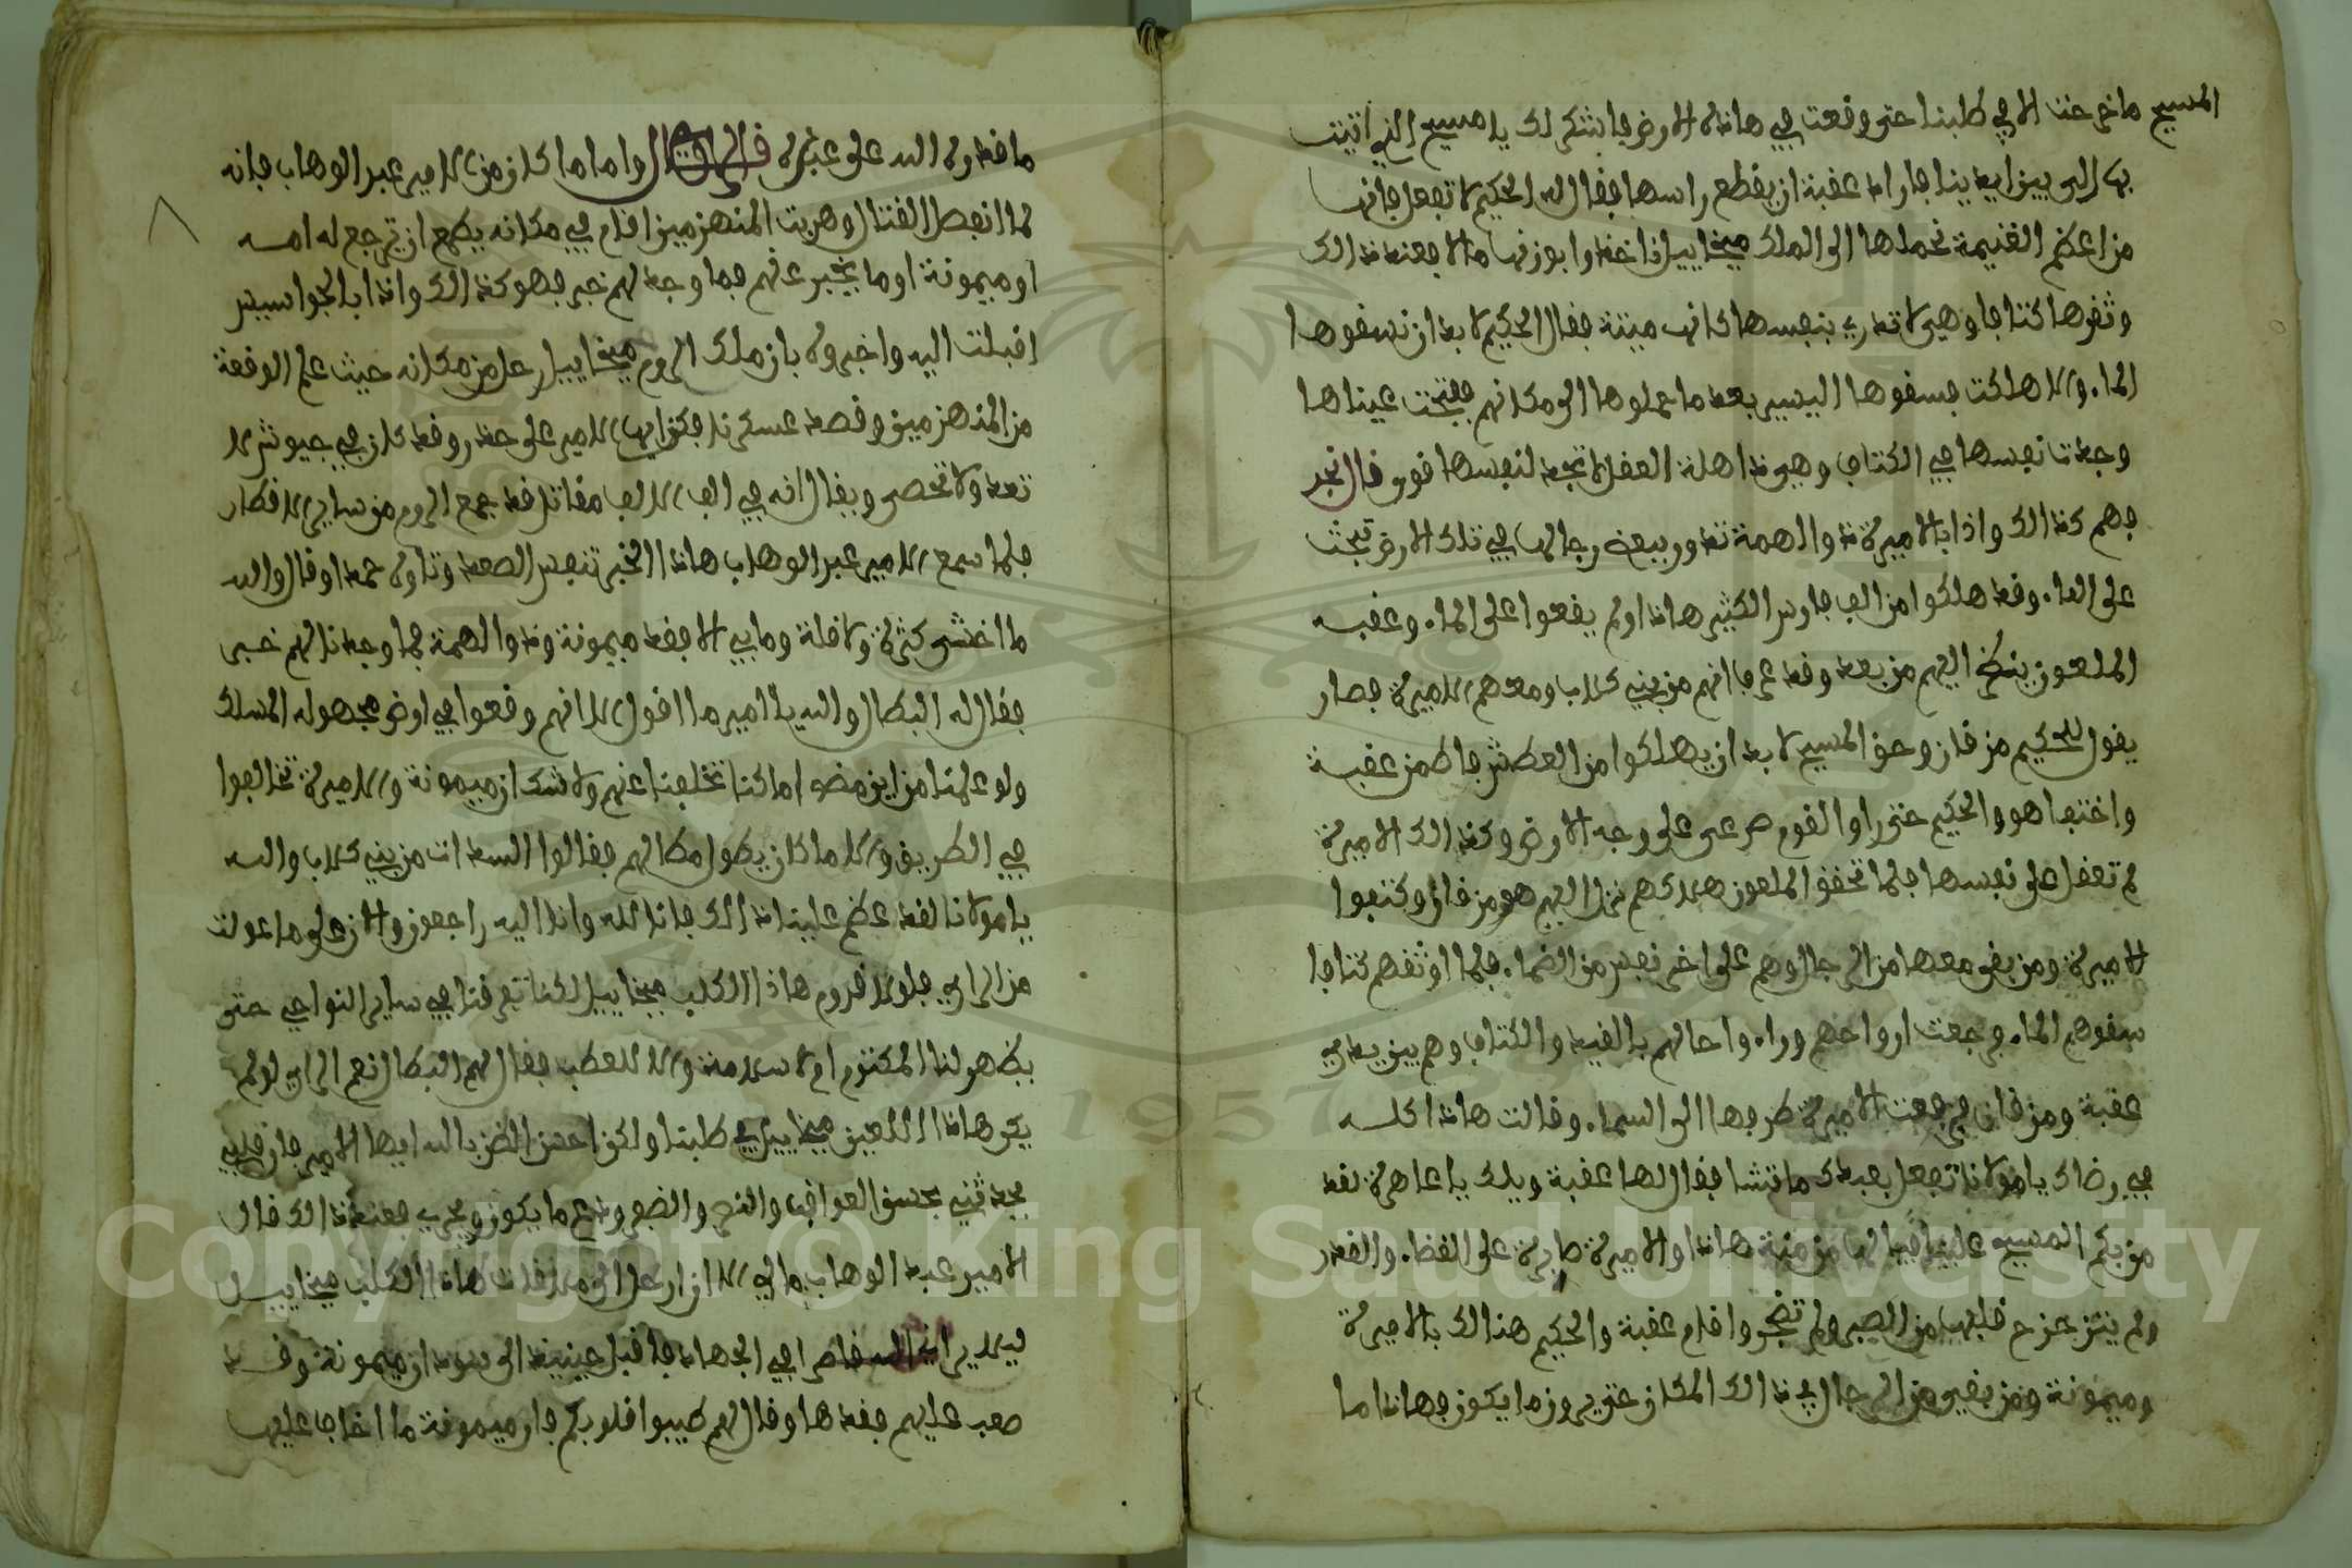 المسيح ما خرجنا الا في طلبنا حتى وقعت في هاذه الارض فاشكرك يا مسيح الذي اتيت
بها الى بين ايدينا فاراد عقبة ان يقطع راسها فقال له الحكيم لا تفعل فانها
من اعظم الغنيمة نحملها الى الملك ميخاييل فاخذوا يوزنها مالا فعند ذالك
وثقوها كتافا وهي لا تدري بنفسها كانها ميتة فقال الحكيم لا بد ان نسقوها
الماء والا هلكت فسقوها اليسير بعد ما حملوها الى مكانهم ففتحت عيناها
وجدت نفسها في الكتاف وهي ذاهلة العقل لا تجد لنفسها قوى قال نجد
فهم كذالك واذا بالاميرة ذوالهمة تدور وبعض رجالها في تلك الارض تبحث
على الماء وقد هلكوا من الف فارس الكثير هاذا ولم يقعوا على الماء وعقبه
الملعون ينظر اليهم من بعد وقد عرفا انهم من بني كلاب ومعهم الاميرة فصار
يقول للحكيم مزقان وحق المسيح لا بد ان يهلكوا من العطش فاكمن عقبة
واختفا هو والحكيم حتى راوا القوم صرعى على وجه الارض وكذالك الاميرة
لم تعقل على نفسها فلما تحقق الملعون هلاكهم نزل اليهم هو ومزقان وكتفوا
الاميرة ومن بقي معها من الرجال وهم على اخر نفس من الضماء فلما اوثقهم كتافا
سقوهم الماء فرجعت ارواحهم وراء واحالهم بالقيد والكتاف وهم بين يدي
عقبة ومزقان فرجعت الاميرة طرفها الى السماء وقالت هاذا كله
في رضاك يا مولانا تفعل بعبدك ما تشا فقال لها عقبة ويلك يا عاهرة لقد
مزبكم المسيح علينا فيا لها من منة هاذا والاميرة صابرة على القضاء والقدر
ولم ينتزعزح قلبها من الصبر ولم تضجر واقام عقبة والحكيم هنالك بالاميرة
وميمونة ومن بقي من الرجال في ذالك المكان حتى يروز ما يكون فهاذا ما
ما قدره الله على عبده قال الراوي واما ما كان من الامير عبد الوهاب فانه
لما انفصل القتال وهربت المنهزمين اقام في مكانه يطمع ان ترجع له امه
او ميمونة او ما يخبر عنهم فما وجد لهم خبر فهو كذالك واذا بالجواسيس
اقبلت اليه واخبروه بان ملك الروم ميخاييل رحل من مكانه حيث علم الوقعة
من المنهزمين وقصد عسكرنا فكن ايها الامير على حذر وقد كان في جيوش لا
تعد ولا تحصى ويقال انه في الف الف مقاتل قد جمع الروم من ساير الافطار
فلما سمع الامير عبد الوهاب هاذا الخبر تنفس الصعد وتاوه حمدا وقال والله
ما اخشى كثرة ولا قلة وما بي الا فقد ميمونة وذوالهمة فما وجدنا لهم خبر
فقال له البطال والله يا امير ما اقول الا انهم وقعوا في ارض مجهولة المسلك
ولو علمنا من اين مضوا ما كنا تخلفنا عنهم ولا شك ان ميمونة والاميرة تخالفوا
في الطريق والا ما كان يطول مطالهم فقالوا السدات من بني كلاب والله
يا مولانا لقد عظم علينا ذالك فانا لله وانا اليه راجعون والان على ما عولت
من الراي فلولا قدوم هاذا الكلب ميخاييل لكنا تفرقنا في ساير النواحي حتى
يظهر لنا المكتوم اما سلامة والا للعطب فقال لهم البطال نعم الراي لو لم
يكن هاذا اللعين ميخاييل في طلبنا ولكن احسن الظن بالله ايها الامير فان قلبي
يحدثني بحسن العواقب والنصر والضفر ودع ما يكون ويجري فعند ذالك قال
الامير عبد الوهاب مالي الا ان ارحل الى ملاقات هاذا الكلب ميخاييل
ليلا يراني الله قاصرا في الجهاد فاقبل حينيذ الى سودان ميمونة وقد
صعب عليهم فقدها وقال لهم طيبوا قلوبكم فان ميمونة ما اخاف عليها
Copyright © King Saud University
1957